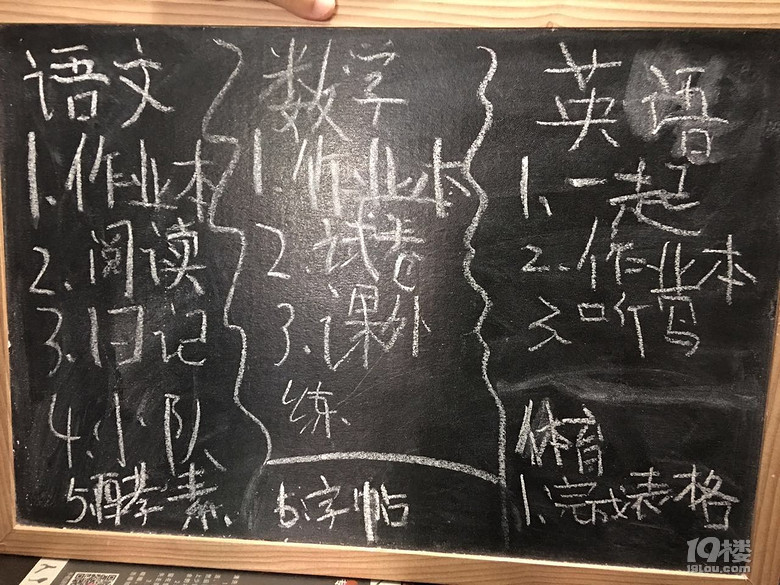 语文
1.作业本
2.阅读
3.日记
4.小队
5.酵素
6.字帖
数学
1.作业本
2.试卷
3.课外
练
英语
1.一起
2.作业本
3.听写
体育
1.完成表格
19楼
19lou.com